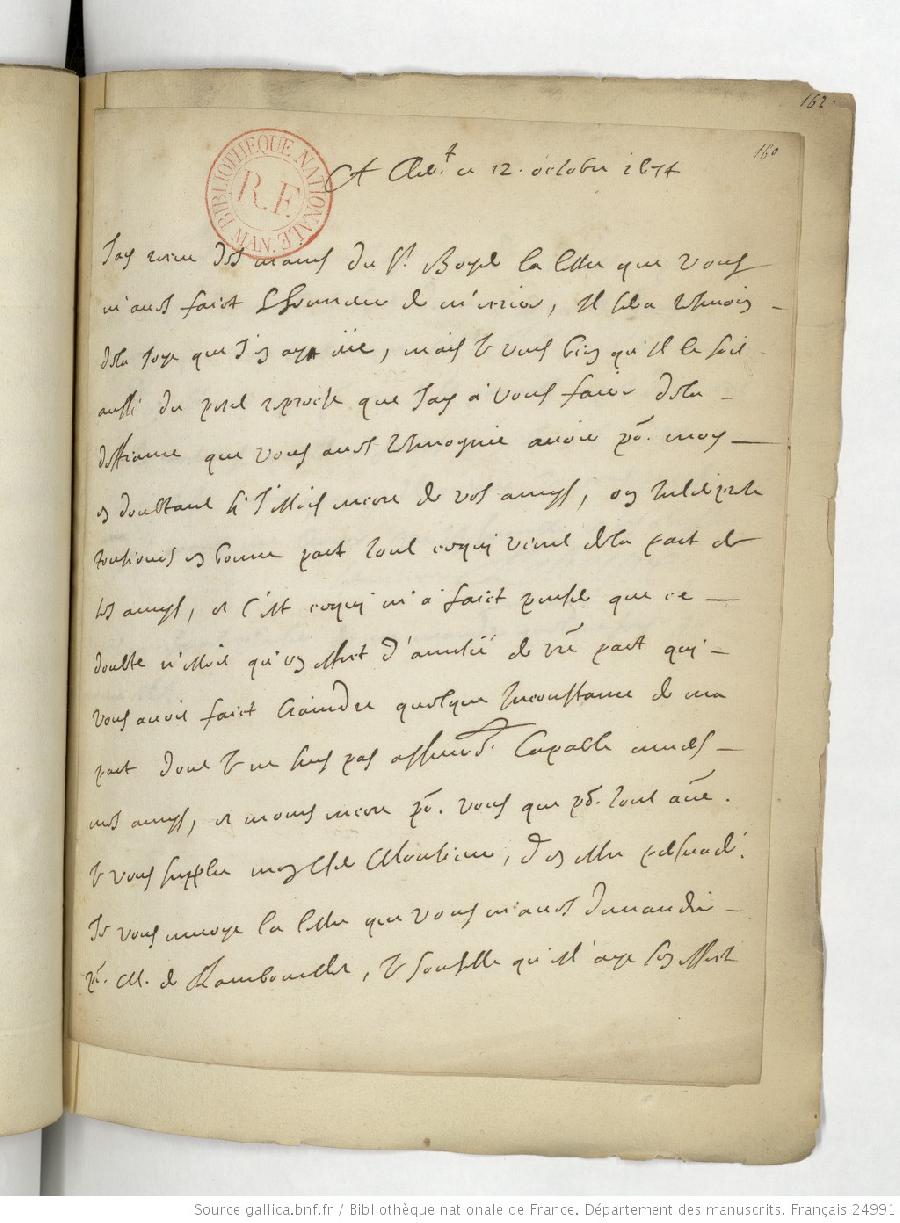 162
160
BIBLIOTHEQUE NATIONALE MAN
R.F.
A ce 12. octobre 1674
J'ay receu des mains du Sr. la lettre que vous
m'aues faict l'honneur de m'escrire, Il sera tesmoin
de la joye que j'en ay eüe, mais Je veus bien qu'Il le soit
aussi du petit reproche que j'ay à vous faire de la
deffiance que vous aues tesmognié auoir pr. moy
en doubtant si J'estois encore de vos amys, on Interprete
tousiours en bonne part tout cequi vient de la part de
ses amys, et c'est cequi m'a faict penser que ce
doubte n'estoit qu'un effect d'amitié de vre part qui
vous auoit faict craindre quelque Inconstance de ma
part dont Je ne suis pas capable enuers
mes amys, et moins encore pr. vous que pr. tout autre.
Je vous supplie mon cher Monsieur, d'en estre persuadé.
Je vous enuoye la lettre que vous m'aues demandée
pr. M. de Rambouillet, Je souhette qu'ell' aye son effect
Source gallica.bnf.fr / Bibliothèque nationale de France. Département des manuscrits. Français 24991